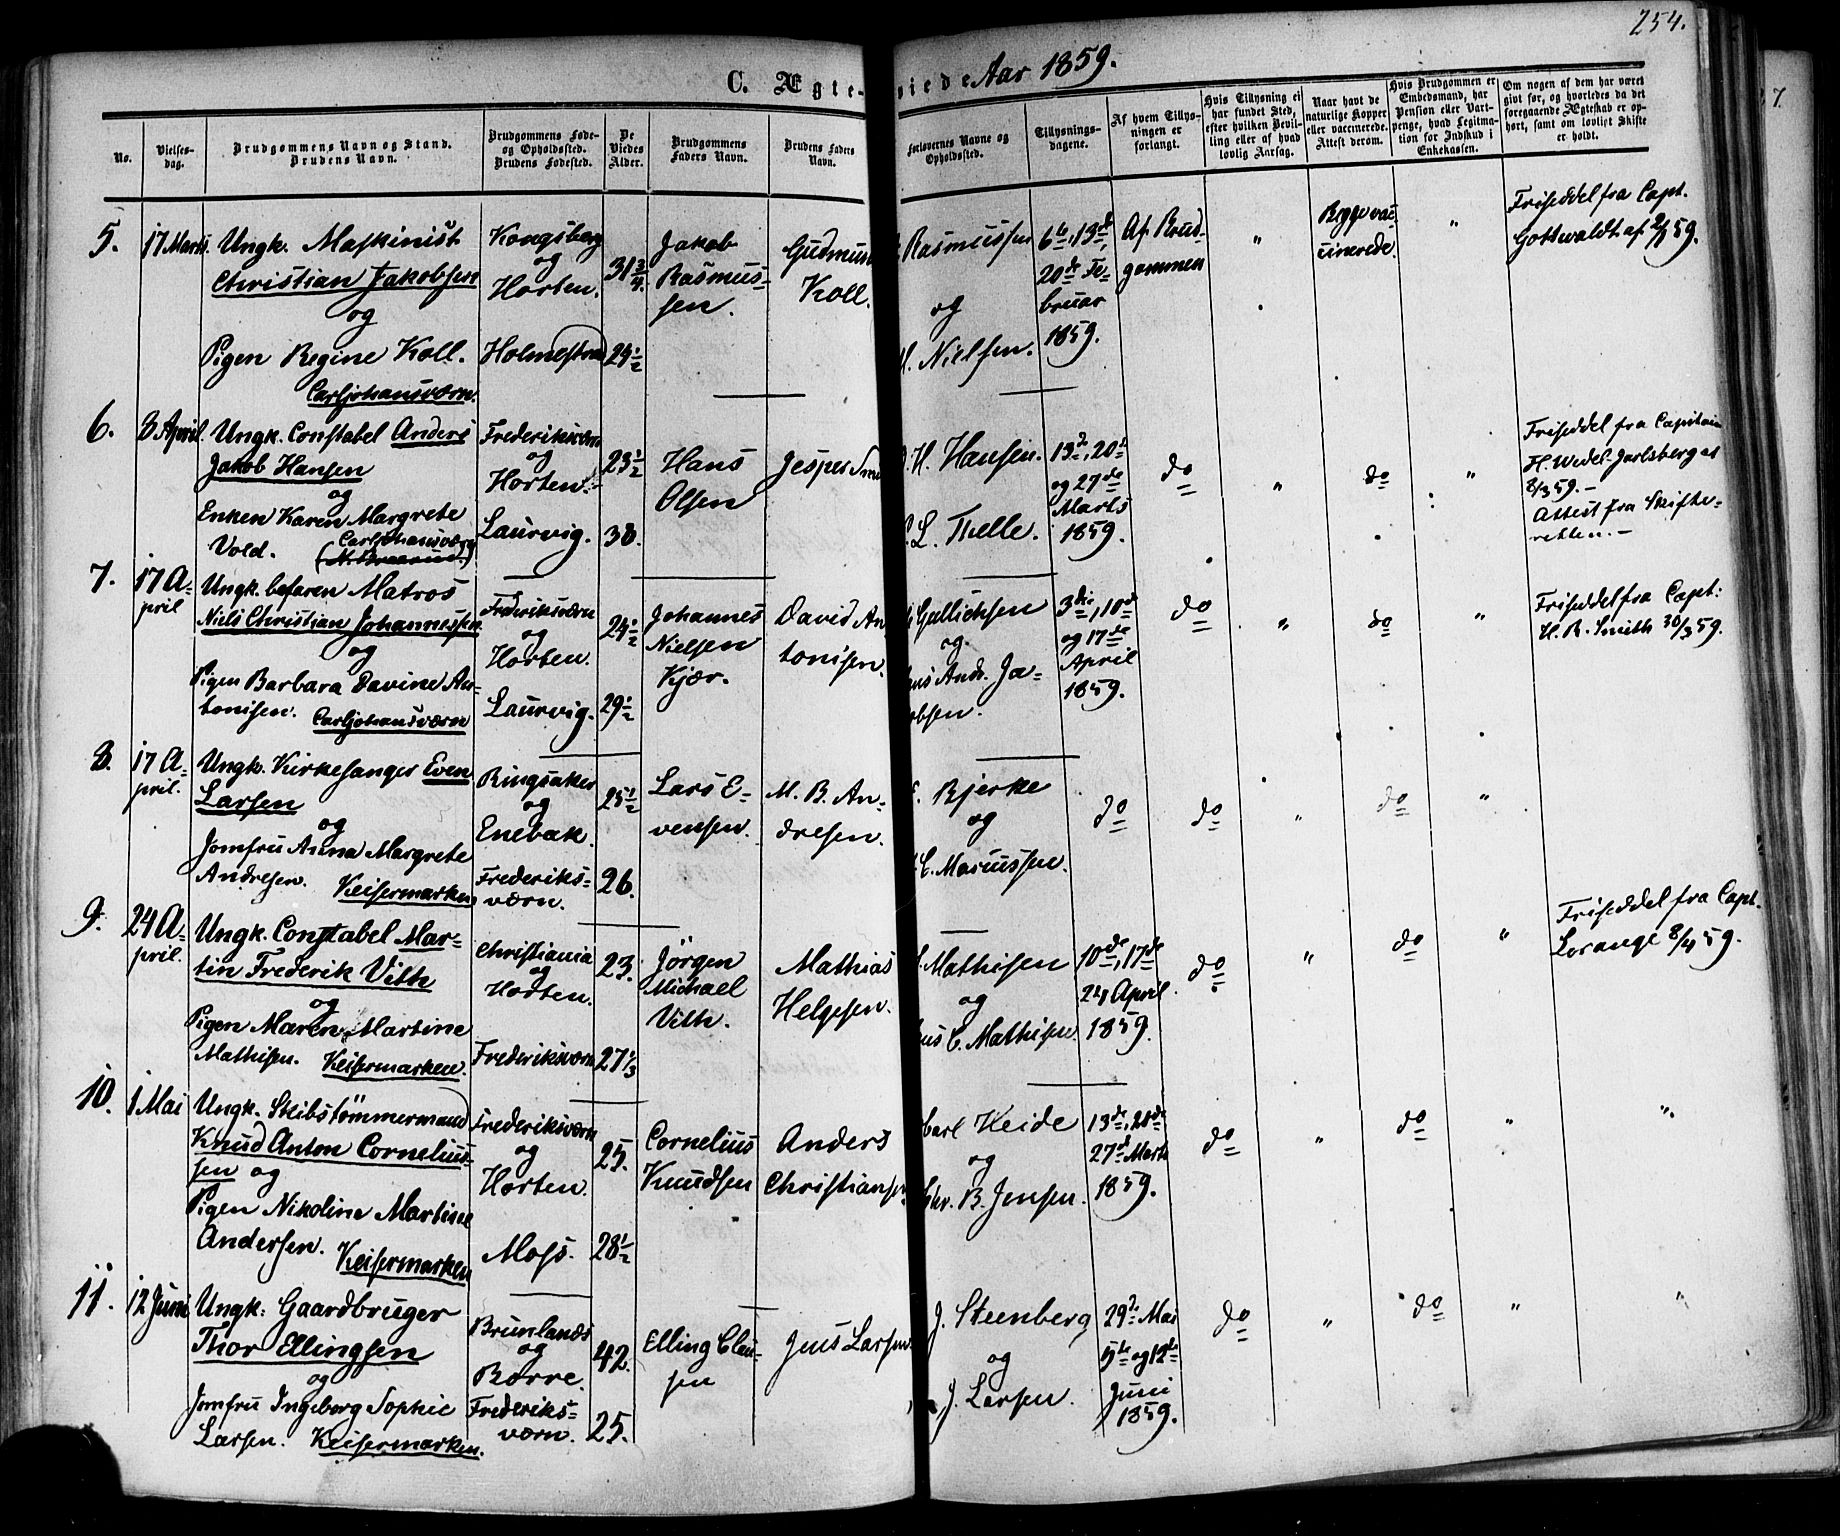 254.
C. Ægteviede Aar 1859.
No.
Vielses-
dag.
Brudgommens Navn og Stand.
Brudens Navn.
Brudgommens Føde-
og Opholdssted.
Brudens Fødested.
De
Viedes
Alder.
Brudgommens
Faders Navn.
Brudens Faders
Navn.
Forlovernes Navne og
Opholdssted.
Tillysnings-
dagene.
Af hvem Tillys-
ningen er
forlangt.
Hvis Tillysning ei
har fundet Sted,
efter hvilken Bevil-
ling eller af hvad
lovlig Aarsag.
Naar havt de
naturlige Kopper
eller vaccinerede.
Attest derom.
Hvis Brudgommen er
Embedsmand, har
Pension eller Vart-
penge, hvad Legitima-
tion for Indskud i
Enkekassen.
Om nogen af dem har været
gift før, og hvorledes da det
foregaaende Ægteskab er op-
hørt, samt om lovligt Skifte
er holdt.
5.
17 Marts.
Ungk. Maskinist
Christian Jakobsen
og
Pigen Regine Koll.
Carljohansværn.
Kongsberg
og
Horten.
Holmestrand
31 3/4.
29 1/2
Jakob
Rasmus-
sen.
Gudmund
Koll.
Rasmussen
og
H. Nielsen.
6te, 13de,
20de Fe-
bruar
1859.
Af Brud-
gommen
"
Begge vac-
cinerede.
"
Friseddel fra Capt.
Gottwaldt af 2/2 59.
6.
8 April.
Ungk. Constabel Anders
Jakob Hansen
og
Enken Karen Margrete
Vold.
Carljohansværn
Frederiksværn
og
Horten.
Laurvig.
23 1/2
30.
Hans
Olsen
Jesper
H. Hansen.
L. Thelle.
13de, 20de
og 27de
Marts
1859.
do
"
do
"
Friseddel fra Capitain
H. Wedel-Jarlsberg af
8/3 59. -
Attest fra Skifte-
retten. -
7.
17 A-
pril
Ungk. befaren Matros
Niels Christian Johannessen
og
Pigen Barbara Davine An-
tonisen. Carljohansværn
Frederiksværn
og
Horten.
Laurvig.
24 1/2
29 1/2
Johannes
Nielsen
Kjær.
David An-
tonisen.
Gullichsen
og
Andr. Ja-
obsen.
3die, 10de
og 17de
April
1859.
do
"
do
"
Friseddel fra Capt:
H. R. Smith 30/3 59.
8.
17 A-
pril.
Ungk. Kirkesanger Even
Larsen
og
Jomfru Anna Margrete
Andresen. Keisermarken
Ringsaker
og
Enebak.
Frederiks-
værn.
25 1/2
26.
Lars E-
vensen.
M. B. An-
dresen.
Bjerke
og
C. Marcussen.
do
do
"
do
"
9.
24 A-
pril.
Ungk. Constabel Mar-
tin Frederik Vith
og
Pigen Maren Martine
Mathisen. Keisermarken.
Christiania
og
Horten.
Frederiksværn
23.
27 1/3
Jörgen
Michael
Vith.
Mathias
Helgesen.
Mathisen
og
C. Mathisen.
10de, 17de
24 April
1859.
do
"
do
"
Friseddel fra Capt.
Lorange 8/4 59.
10.
1 Mai
Ungk. Skibstömmermand
Knud Anton Cornelius-
sen og
Pigen Nikoline Martine
Andersen. Keisermarken
Frederiksværn
og
Horten.
Moss.
25.
28 1/2
Cornelius
Knudsen
Anders
Christiansen
Carl Heide
og
Chr. B. Jensen.
13de, 20de
27de Marts
1859.
do
"
do
"
"
11.
12 Juni
Ungk: Gaardbruger
Thor Ellingsen
og
Jomfru Ingeborg Sophie
Larsen. Keisermarken.
Brunlanæs
og
Borre.
Frederiks-
værn.
42.
25.
Elling Clau-
sen
Jens Larsen.
J. Steenberg
og
J. Larsen.
29de Mai
5te og 12te
Juni
1859.
do
"
do
"
"